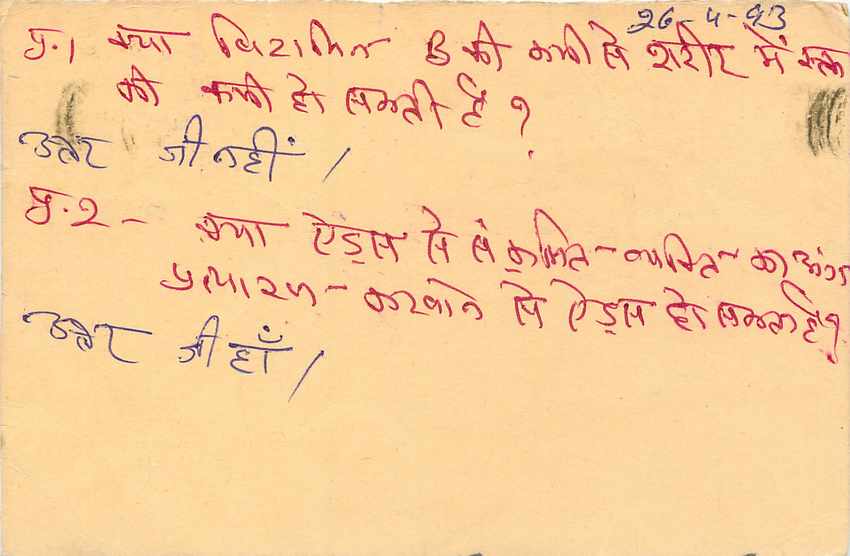 26-4-93
प्र.1 क्या विटामिन B की कमी से शरीर में रक्त
की कमी हो सकती है ?
उत्तर जी नहीं /
प्र.2 - क्या ऐड्स से संक्रमित-व्यक्ति का अंग
प्रत्यारण - करवाने से ऐड्स हो सकता है ?
उत्तर जी हाँ /